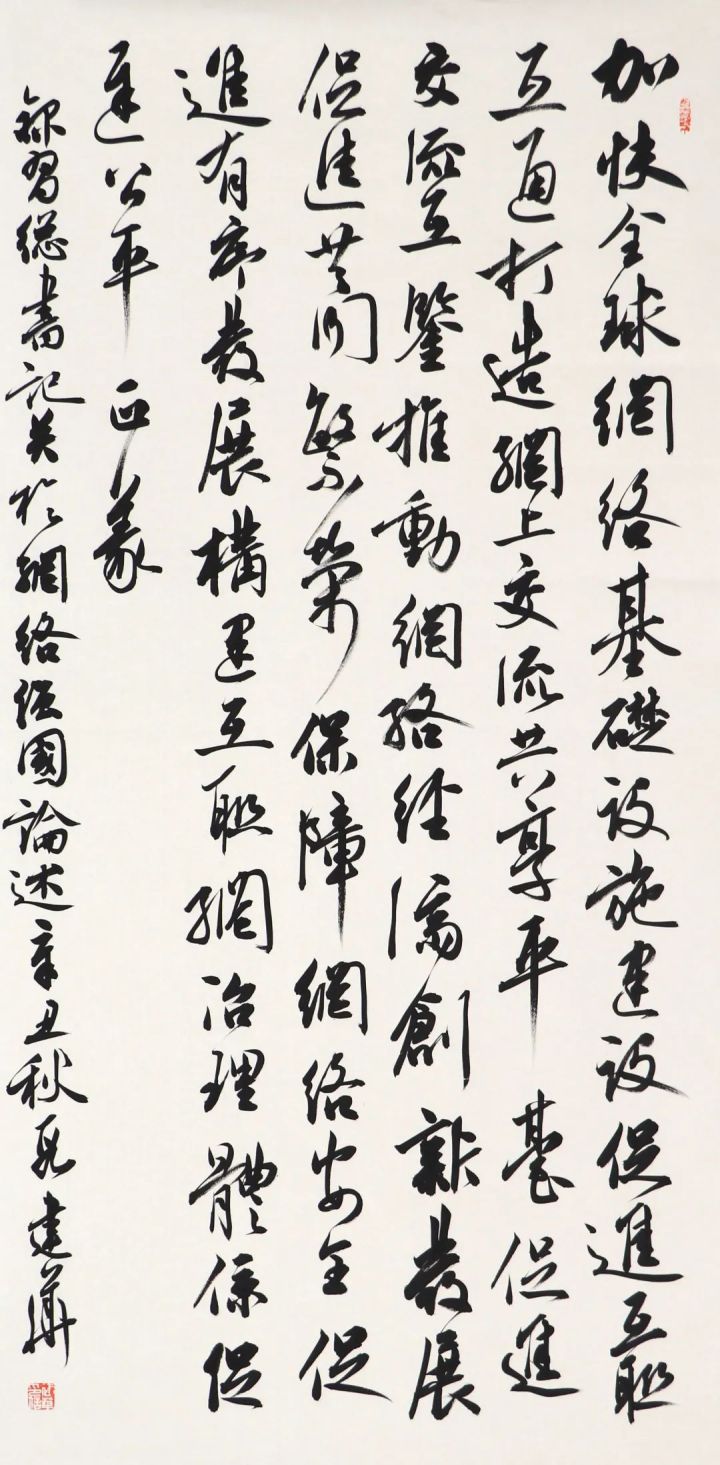 加快全球網絡基礎設施建設促進互聯
互通打造網上交流共享平臺促進
交流互鑒推動網絡經濟創新發展
促進共同繁榮保障網絡安全促
進有序發展構建互聯網治理體係促
進公平正義
錄習總書記關於網絡強國論述辛丑秋建華